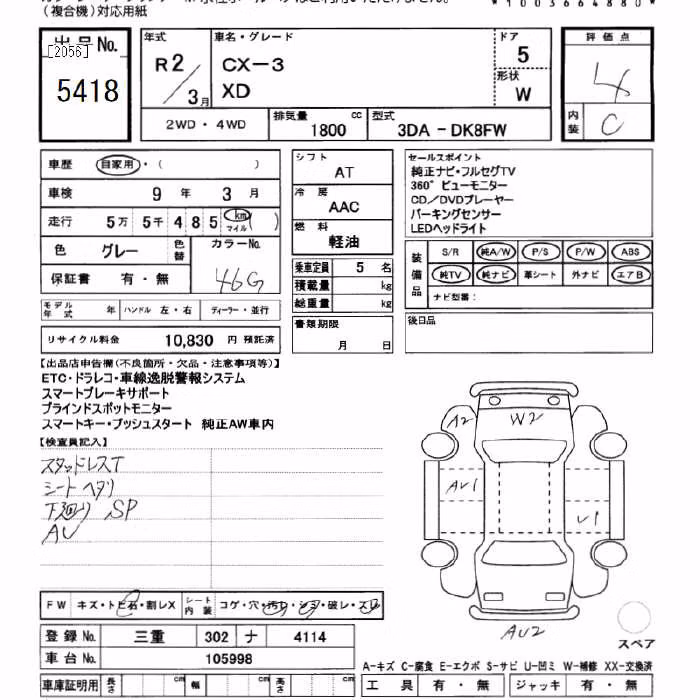 (複合機)対応用紙
*1003664880*
出品No.
[2056]
5418
年式
R2
3月
車名・グレード
CX-3
XD
ドア
5
形状
W
評価点
4
内装
C
2WD・4WD
排気量
1800 cc
型式
3DA-DK8FW
車歴 自家用・( )
車検 9年 3月
走行 5万 5千 4 8 5 km マイル ( )
色 グレー 色替 カラーNo. 46G
保証書 有・無
モデル年式 年 ハンドル 左・右 ディーラー・並行
リサイクル料金 10,830 円 預託済
シフト
AT
冷房
AAC
燃料
軽油
乗車定員 5 名
積載量 kg
総重量 kg
書類期限
月 日
セールスポイント
純正ナビ・フルセグTV
360°ビューモニター
CD/DVDプレーヤー
パーキングセンサー
LEDヘッドライト
装備品
S/R 純A/W P/S P/W ABS
純TV 純ナビ 革シート 外ナビ エアB
ナビ型番:
後日品
【出品店申告欄(不良箇所・欠品・注意事項等)】
ETC・ドラレコ・車線逸脱警報システム
スマートブレーキサポート
ブラインドスポットモニター
スマートキー・プッシュスタート 純正AW車内
【検査員記入】
スタッドレスT
シートヘタリ
下廻り SP
AU
A2
W2
AU1
U1
AU2
スペア
FW キズ・トビ石・割レX シート内装 コゲ・穴・汚レ・シミ・破レ・スレ
登録No. 三重 302 ナ 4114
車台No. 105998
車庫証明用 長さ cm 幅 cm 高さ cm
A-キズ C-腐食 E-エクボ S-サビ U-凹ミ W-補修 XX-交換済
工具 有・無 ジャッキ 有・無